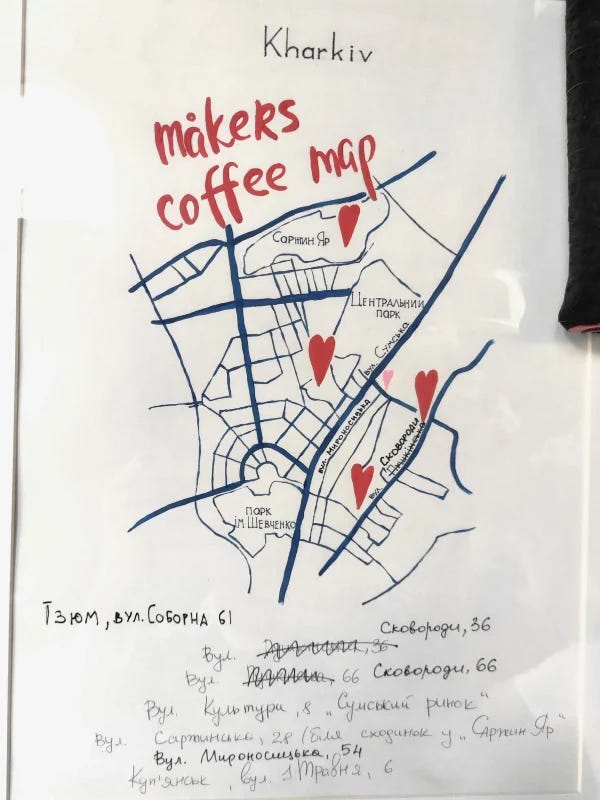 Kharkiv
måkers
coffee map
Саржин Яр
Центральний
парк
вул. Сумська
вул. Мироносицька
Сковороди
вул. Пушкінська
парк
ім Шевченко
Ізюм, вул. Соборна 61
Сковороди, 36
Вул. , 36
Вул. , 66 Сковороди, 66
Вул. Культури, 8 „Сумський ринок"
Вул. Саржинська, 28 (біля сходинок у „Саржин Яр"
Вул. Мироносицька, 54
Куп'янськ, вул. 1 Травня, 6